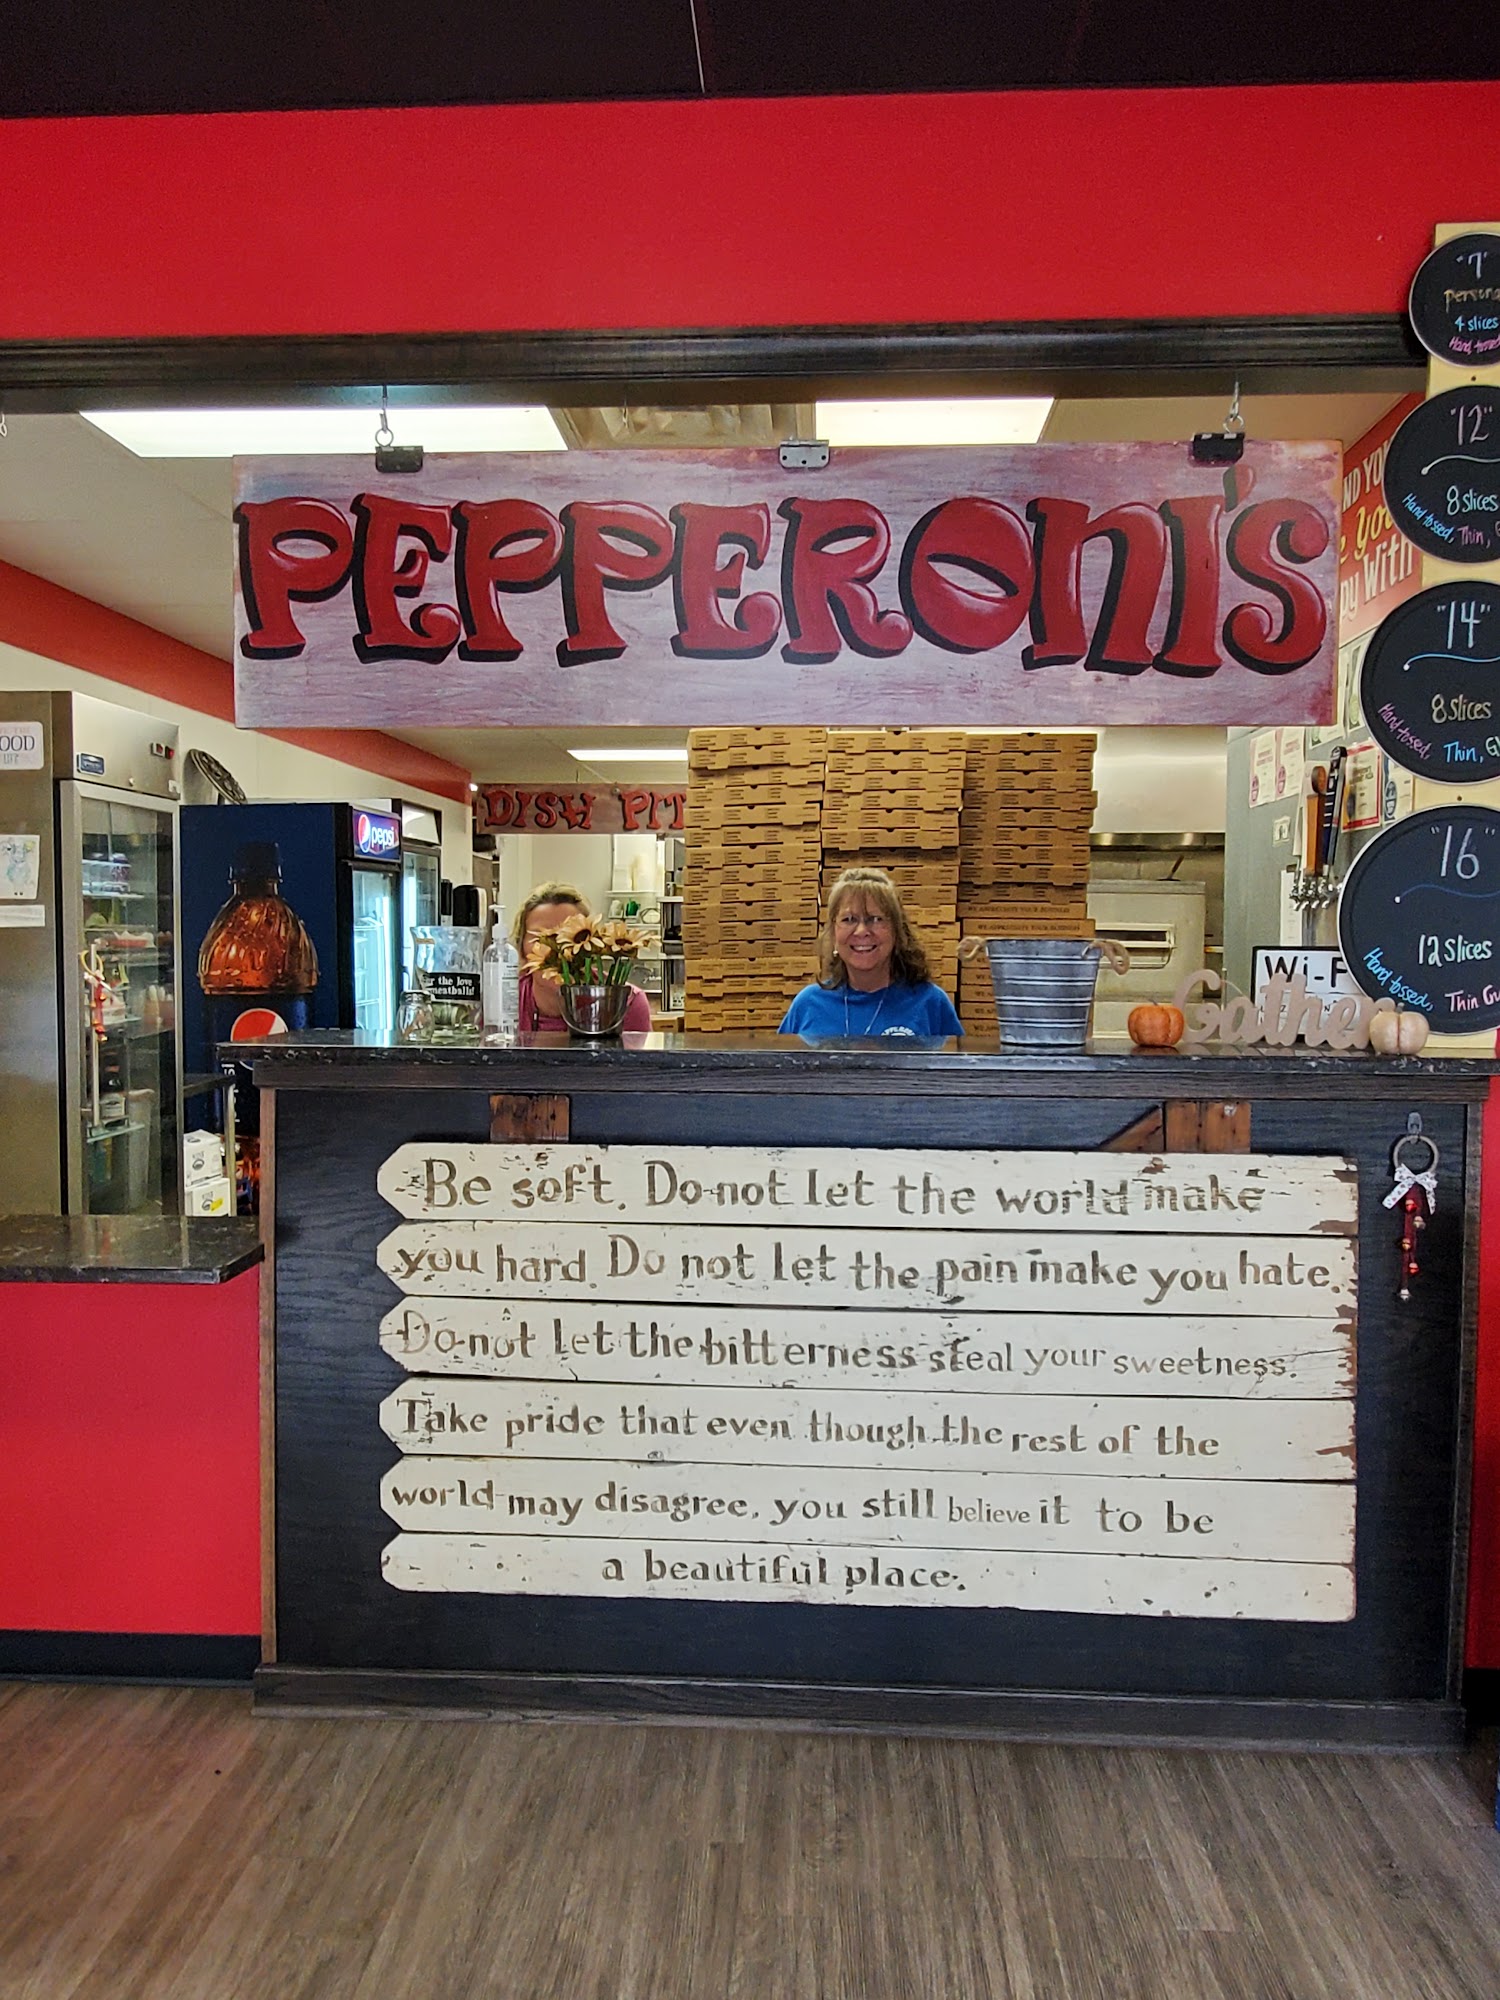 PEPPERONI'S
"7"
4 slices
Hand tossed
"12"
8 slices
Hand tossed, Thin,
"14"
8 slices
Hand-tossed,
Thin,
"16"
12 slices
Hand tossed,
Thin
With
DISH PIT
pepsi
meatballs!
the love
Gather
Be soft. Do not let the world make
you hard. Do not let the pain make you hate.
Do not let the bitterness steal your sweetness.
Take pride that even though the rest of the
world may disagree, you still believe it to be
a beautiful place.